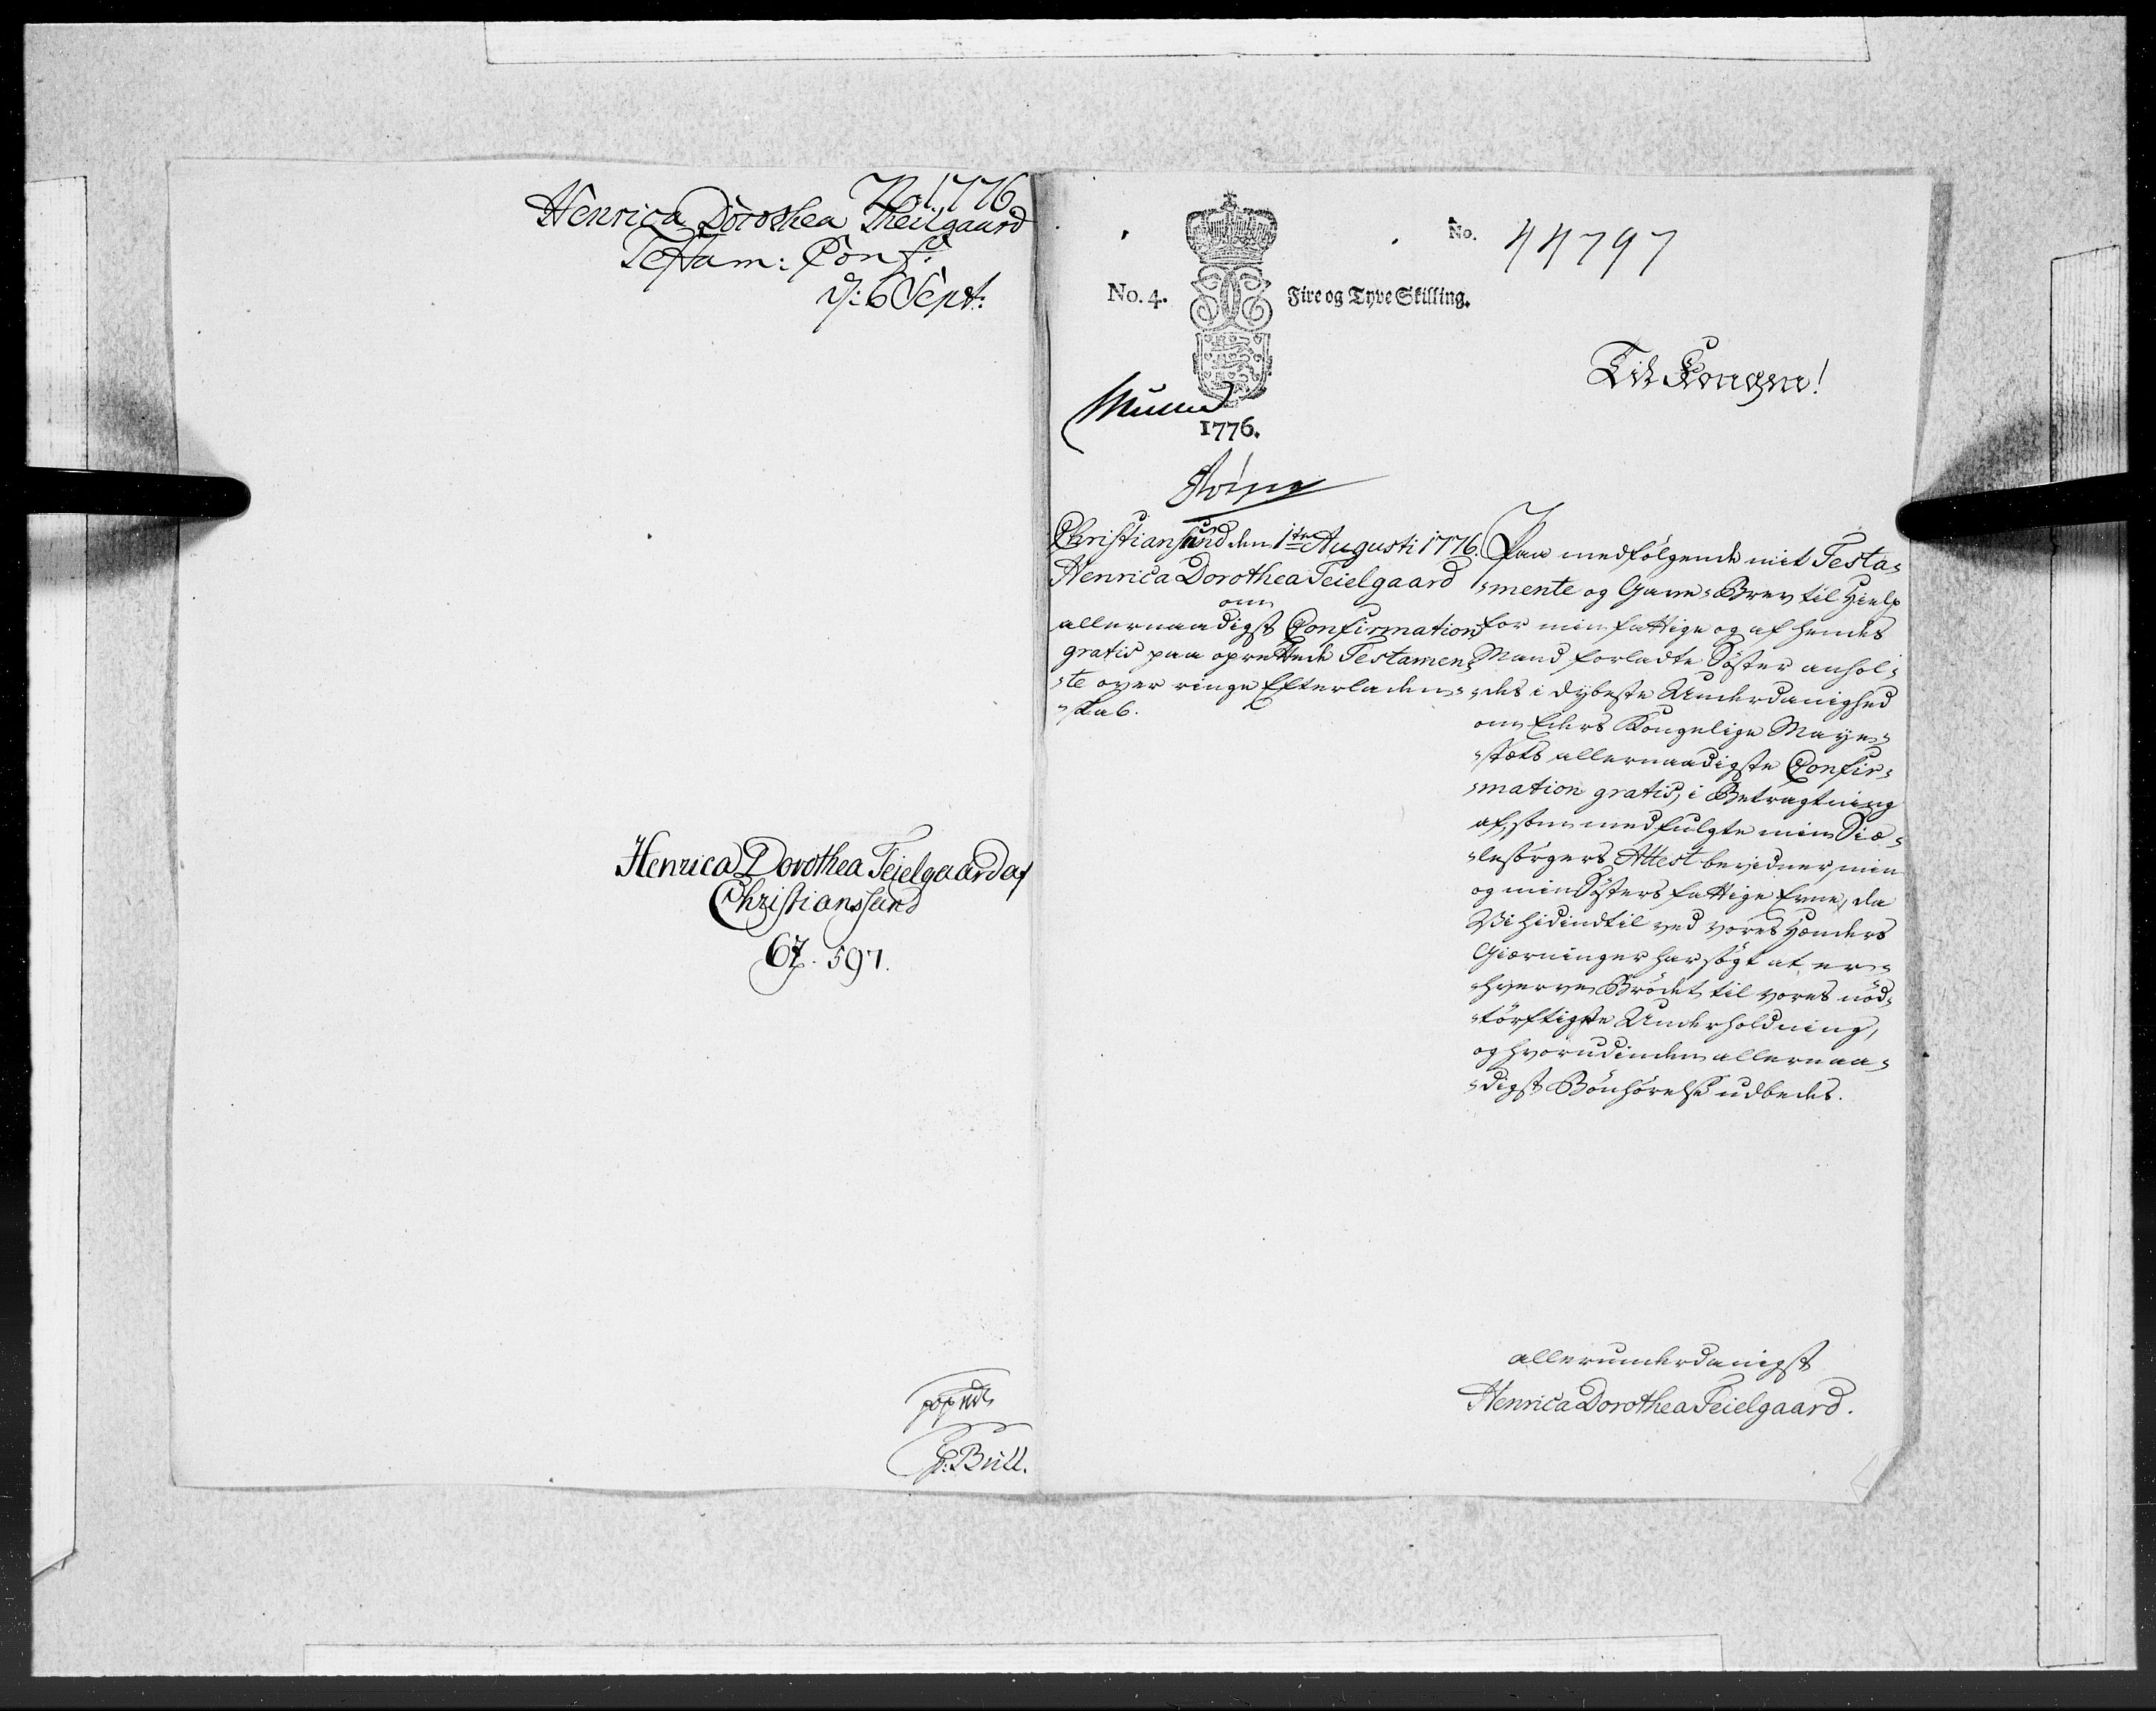 No. 1776
Henrica Dorothea Theilgaard
Testam: Conf:
d: 6 Sept:
Henrica Dorothea Teielgaard af
Christianssund
67. 597.
P: Bull.
No. 44797
No. 4. Fire og Tyve Skilling.
1776.
Til Kongen!
Christiansund den 1te Augusti 1776.
Henrica Dorothea Teielgaard
om
allernaadigst Confirmation
gratis paa oprettede Testamen-
-te over ringe Efterladen-
-skab.
Paa medfølgende mit Testa-
-mente og Gave-Brev til Hielp
for min fattige og af hendes
Mand forladte Søster anhol-
-des i dybeste Underdanighed
om Eders Kongelige Maye-
-stæts allernaadigste Confir-
-mation gratis, i Betragtning
af, som medfulgte min Siæ-
-lesørgers Attest bevidner, min
og min Søsters fattige Evne, da
Vi hidindtil ved vores Hænders
Giærninger har søgt at er-
-hverve Brødet til vores nød-
-tørftigste Underholdning,
og hvorudinden allernaa-
-digst Bønhørelse udbedes.
allerunderdanigst
Henrica Dorothea Teielgaard.